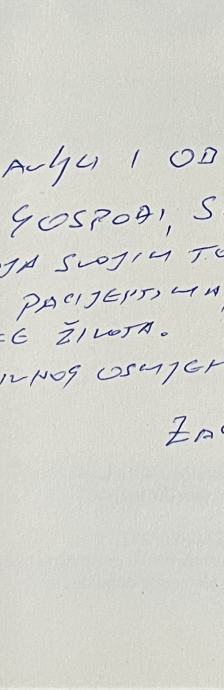 I OD
GOSPOĐI, S
JA SVOJIM TO
PACIJENTIMA,
CE ŽIVOTA.
IVNOG OSMJEH
ZAG